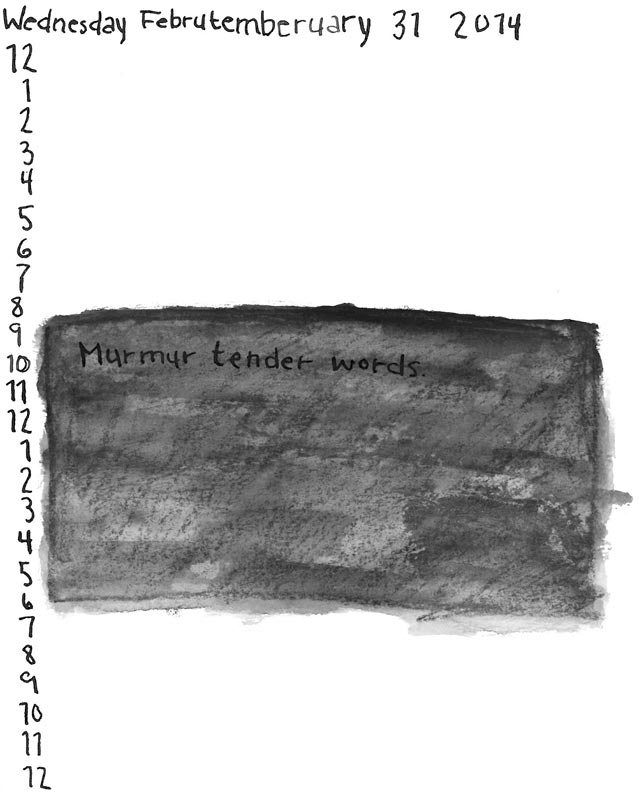 Wednesday Februtemberuary 31 2014
12
1
2
3
4
5
6
7
8
9
10
11
12
1
2
3
4
5
6
7
8
9
10
11
12
Murmur tender words.